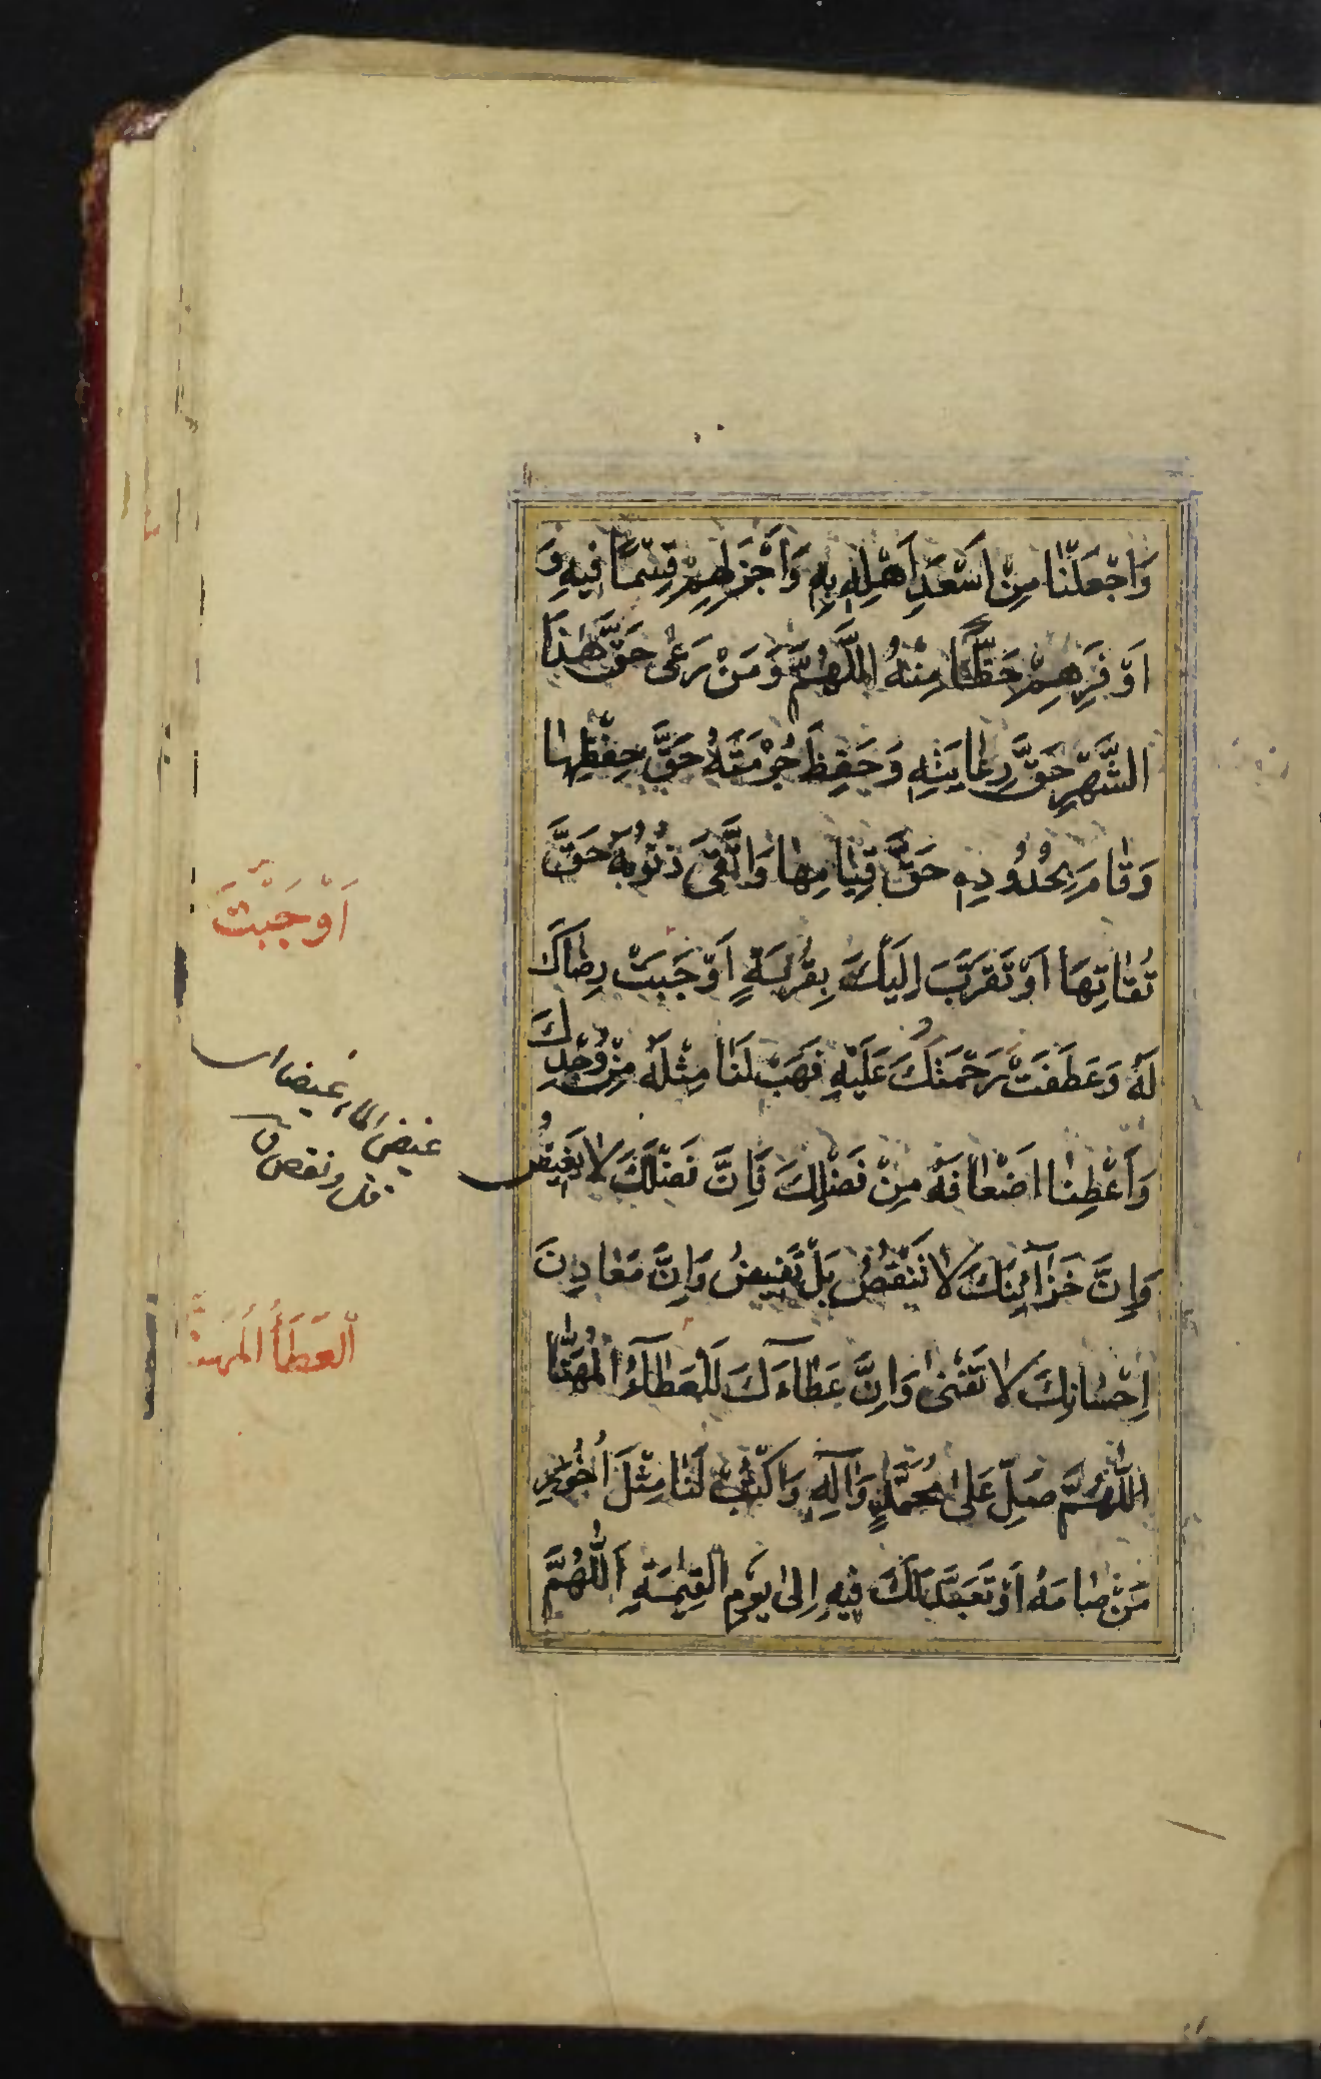 وَاجْعَلْنَا مِنْ اَسْعَدِ اَهْلِهِ بِهِ وَاَجْزَلِهِمْ قِسْمًا فِيهِ وَ
اَوْفَرِهِمْ حَظًّا مِنْهُ اللَّهُمَّ وَمَنْ رَعٰى حَقَّ هٰذَا
الشَّهْرِ حَقَّ رِعَايَتِهِ وَحَفِظَ حُرْمَتَهُ حَقَّ حِفْظِهَا
وَقَامَ بِحُدُودِهِ حَقَّ قِيَامِهَا وَاتَّقٰى ذُنُوبَهُ حَقَّ
تُقَاتِهَا اَوْ تَقَرَّبَ اِلَيْكَ بِقُرْبَةٍ اَوْجَبَتْ رِضَاكَ
لَهُ وَعَطَفَتْ رَحْمَتَكَ عَلَيْهِ فَهَبْ لَنَا مِثْلَهُ مِنْ وُجْدِكَ
وَاَعْطِنَا اَضْعَافَهُ مِنْ فَضْلِكَ فَاِنَّ فَضْلَكَ لَا يَغِيضُ
وَاِنَّ خَزَآئِنَكَ لَا تَنْقُصُ بَلْ تَفِيضُ وَاِنَّ مَعَادِنَ
اِحْسَانِكَ لَا تَفْنٰى وَاِنَّ عَطَآءَكَ لَلْعَطَآءُ الْمُهَنَّا
اللَّهُمَّ صَلِّ عَلٰى مُحَمَّدٍ وَآلِهِ وَاكْتُبْ لَنَا مِثْلَ اُجُورِ
مَنْ صَامَهُ اَوْ تَعَبَّدَ لَكَ فِيهِ اِلٰى يَوْمِ الْقِيٰمَةِ اَللَّهُمَّ
اَوْجَبَتْ
غيض الماء غيضا
قل ونقص
الْعَطَآءُ الْمُهَنَّا